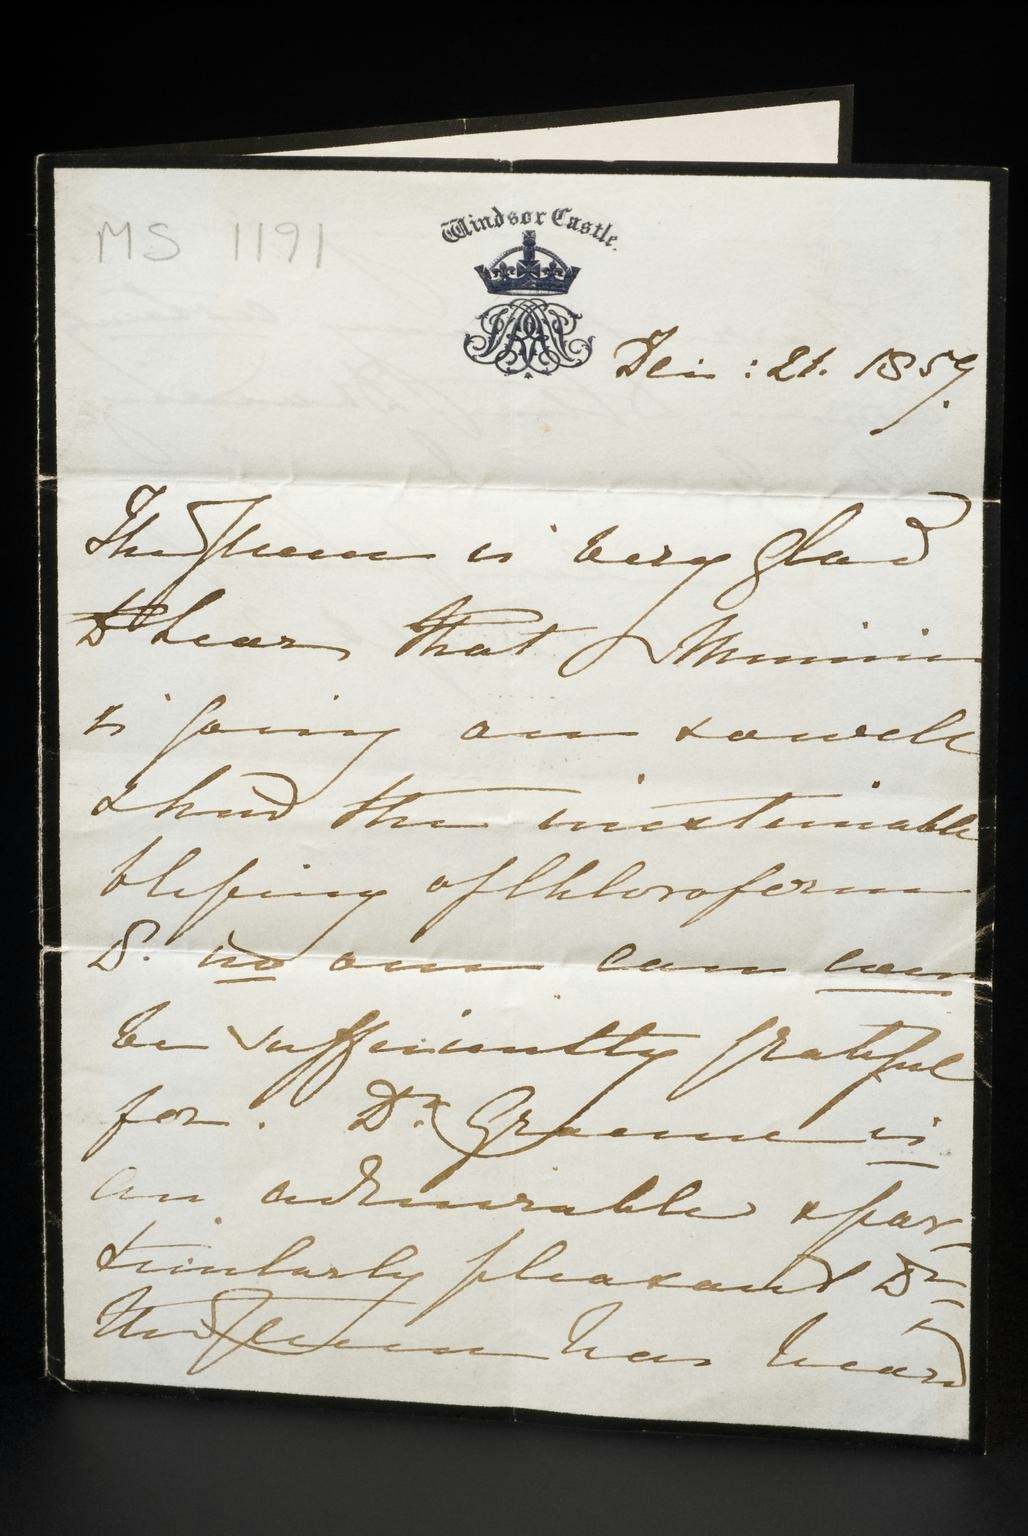 MS 1191
Windsor Castle.
Dec: 21. 1859.
The Queen is very glad
to hear that Minnie
is going on so well
& had the inestimable
blessing of Chloroform
no one can ever
be sufficiently grateful
for. Dr. Graeme is
an admirable & par-
ticularly pleasant Dr
The Queen has heard